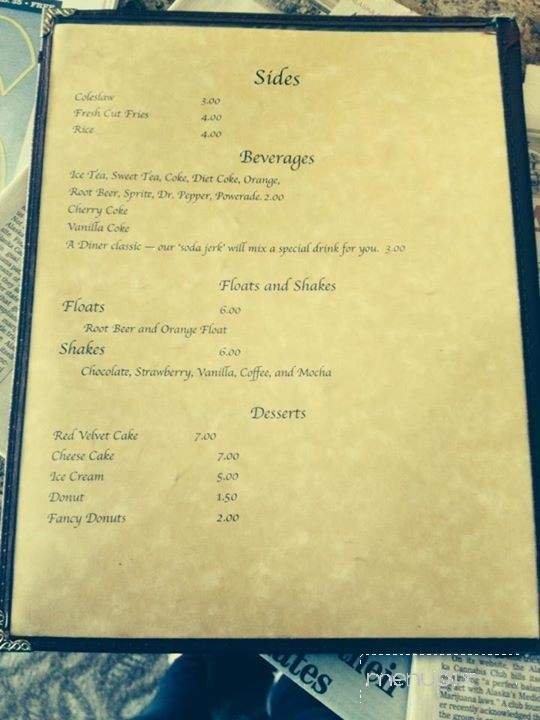 Sides
Coleslaw 3.00
Fresh Cut Fries 4.00
Rice 4.00
Beverages
Ice Tea, Sweet Tea, Coke, Diet Coke, Orange,
Root Beer, Sprite, Dr. Pepper, Powerade. 2.00
Cherry Coke
Vanilla Coke
A Diner classic — our 'soda jerk' will mix a special drink for you. 3.00
Floats and Shakes
Floats 6.00
Root Beer and Orange Float
Shakes 6.00
Chocolate, Strawberry, Vanilla, Coffee, and Mocha
Desserts
Red Velvet Cake 7.00
Cheese Cake 7.00
Ice Cream 5.00
Donut 1.50
Fancy Donuts 2.00
On its website, the
Cannabis Club bills
a perfect
act with Alaska's
Marijuana laws."
er recently acknowledged